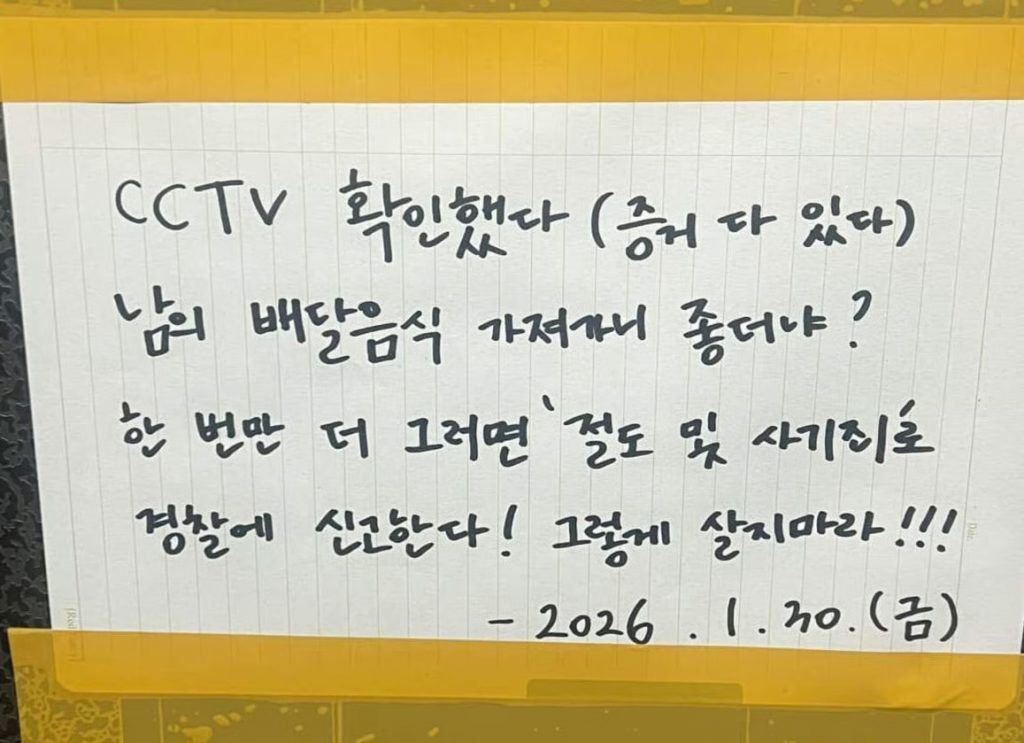 CCTV 확인했다 (증거 다 있다)
남의 배달음식 가져가니 좋더냐?
한 번만 더 그러면 '절도 및 사기죄'로
경찰에 신고한다! 그렇게 살지마라!!!
- 2026. 1. 30. (금)
Date.